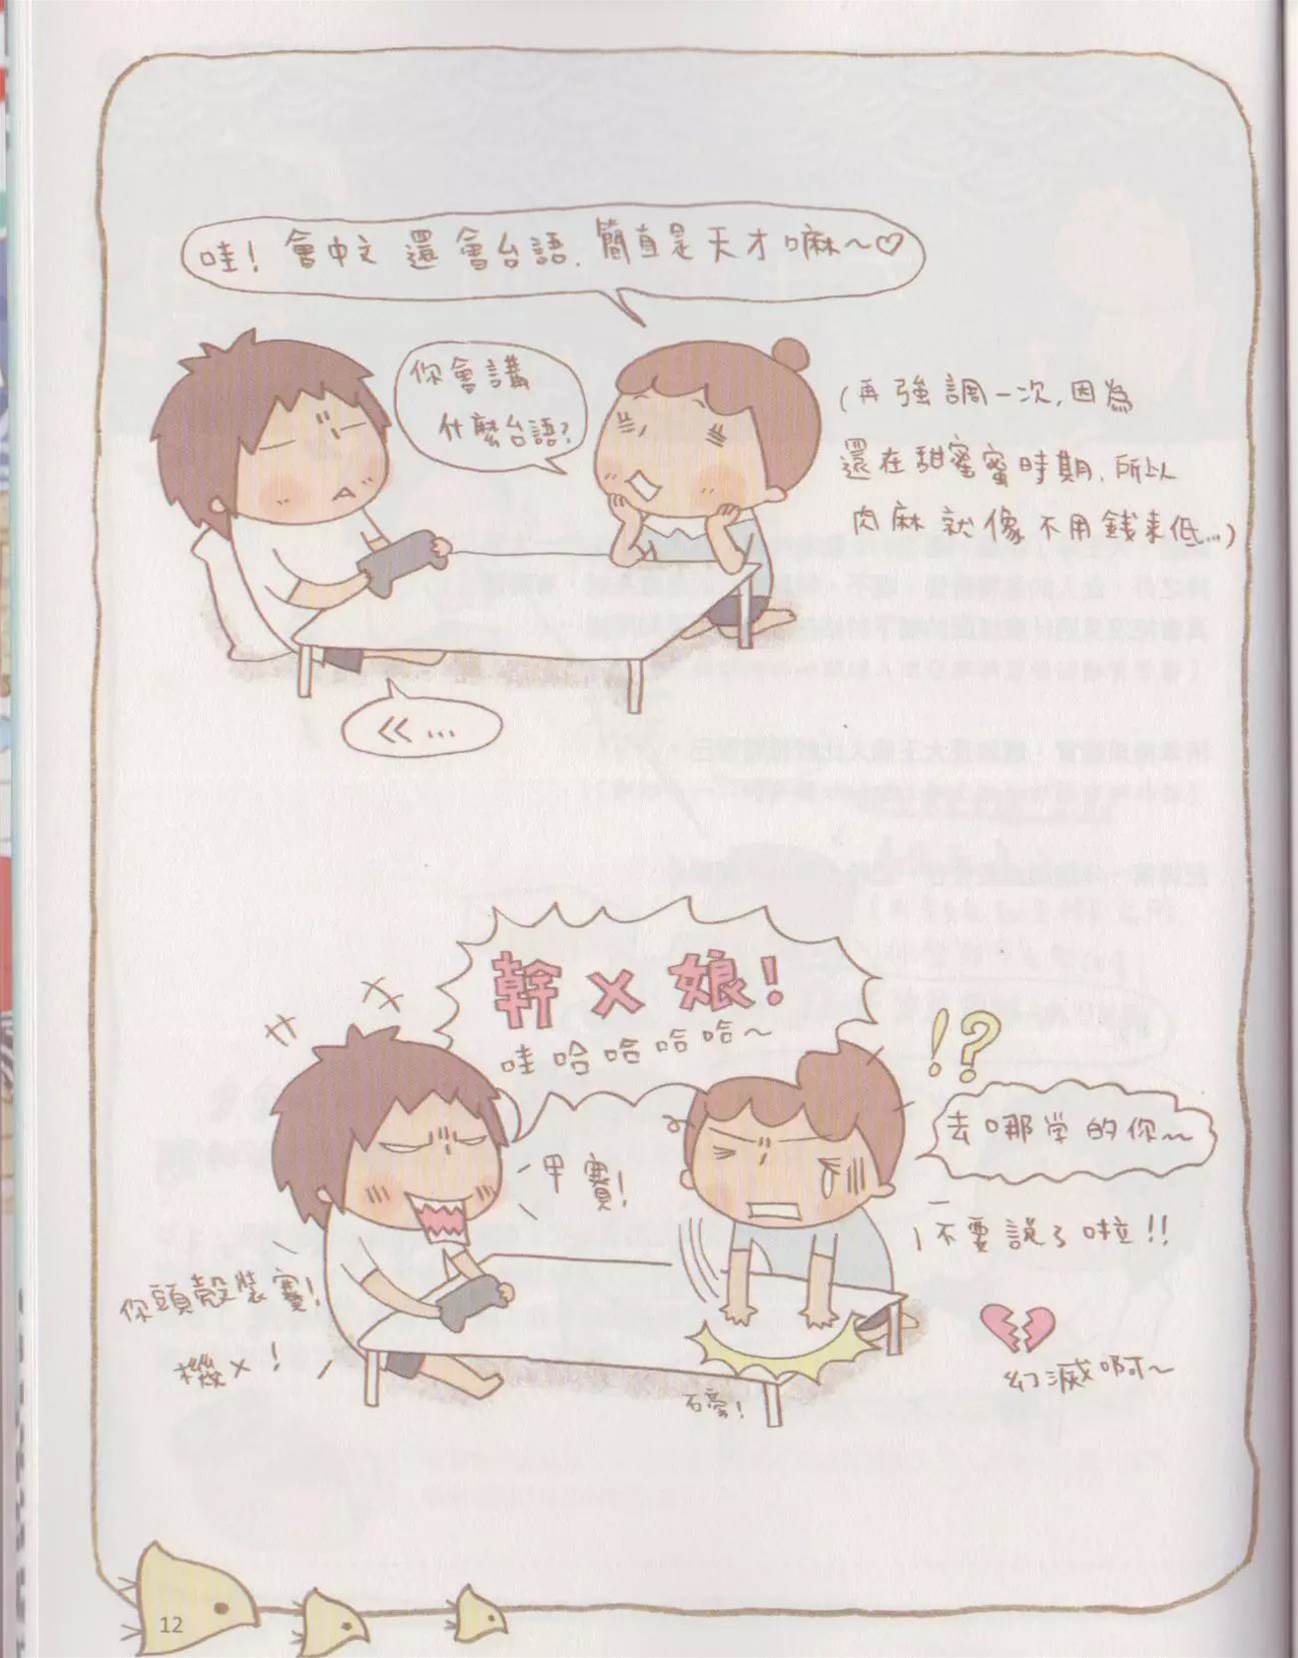 哇！會中文 還會台語.簡直是天才嘛～♡
你會講
什麼台語?
(再強調一次,因為
還在甜蜜蜜時期,所以
肉麻就像不用錢來低...)
ㄍ...
幹ㄨ娘！
哇哈哈哈哈～
!?
去哪学的你～
甲賽!
不要說了啦!!
你頭殼裝賽!
機ㄨ!
幻滅啊～
12